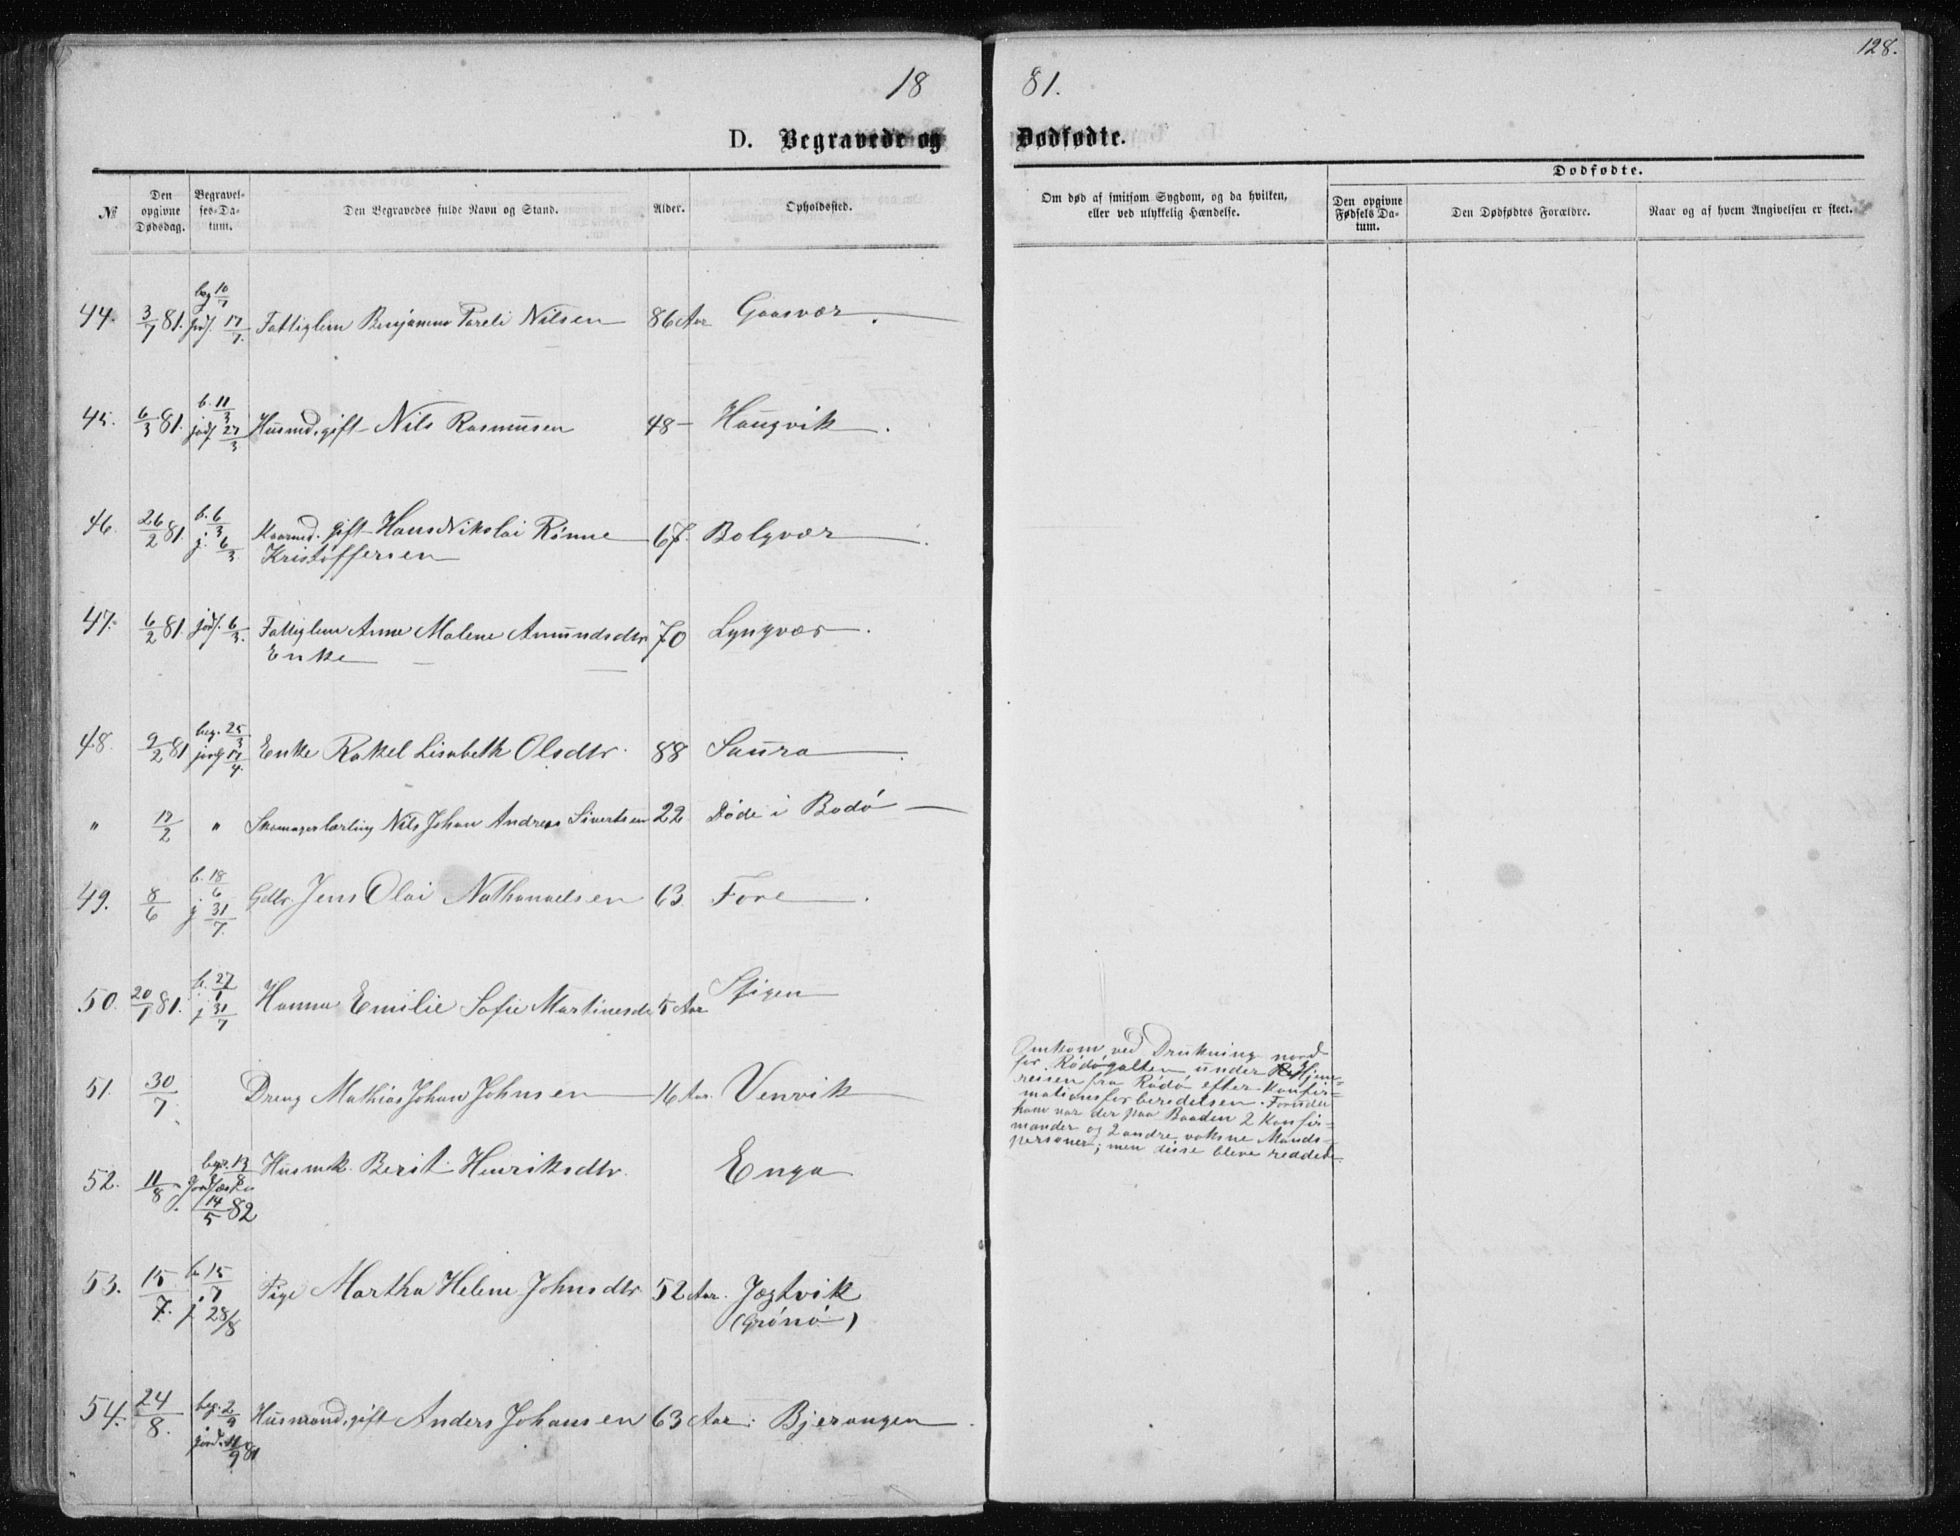 128.
18 81.
D. Begravede og Dødfødte.
№
Den opgivne Dødsdag.
Begravelses-Datum.
Den Begravedes fulde Navn og Stand.
Alder.
Opholdssted.
Om død af smitsom Sygdom, og da hvilken, eller ved ulykkelig Hændelse.
Dødfødte.
Den opgivne Fødsels Datum.
Den Dødfødtes Forældre.
Naar og af hvem Angivelsen er skeet.
44. 3/7 81. beg 10/7 jordf. 17/7. Fattiglem Benjamin Pareli Nilsen 86 Aar Gaasvær.
45. 6/3 81. b. 11/3 jordf 27/3 Husmd. gift Nils Rasmusen 48 – Haugvik.
46. 26/2 81. b. 6/3 j. 6/3. Kaarmd. gift Hans Nikolai Rinne 67. Bolgvær.
Kristoffersen
47. 6/2 81. jordf. 6/3. Fattiglem Anne Malene Amundsdtr 70 Lyngvær.
Enke
48. 9/2 81 beg. 25/3 jordf 17/4. Enke Rakel Lisabeth Olsdtr. 88 Saura.
" 17/2 " Skomagerlærling Nils Johan Andreas Sivertsen 22 Døde i Bodø
49. 8/6 b. 18/6 j 31/7. Gdbr. Jens Olai Nathanaelsen 63. Fore.
50. 20/1 81. b. 27/1 j 31/7 Hanna Emilie Sofie Martinesdr 5 Aar Stigen
51. 30/7 Dreng Mathias Johan Johnsen 16 Aar. Venvik
Omkom ved Drukning nord
for Rødøgalten under Hjem-
reisen fra Rødø efter Konfir-
mationsforberedelsen. Foruden
ham var der paa Baaden 2 Konfir-
mander og 2 andre voksne Mands-
personer; men disse bleve reddede.
52. 11/8. begr. 13/8 Jordfæstu 14/5 82 Husmk. Berit Henriksdtr. Enga
53. 15/7. b. 15/7 j 28/8 Pige Martha Helene Johnsdtr 52 Aar. Jægtvik
(Grønø)
54. 24/8. beg. 2/9 jord. 11/9 81 Husmand, gift Anders Johansen 63 Aar. Bjerangen.